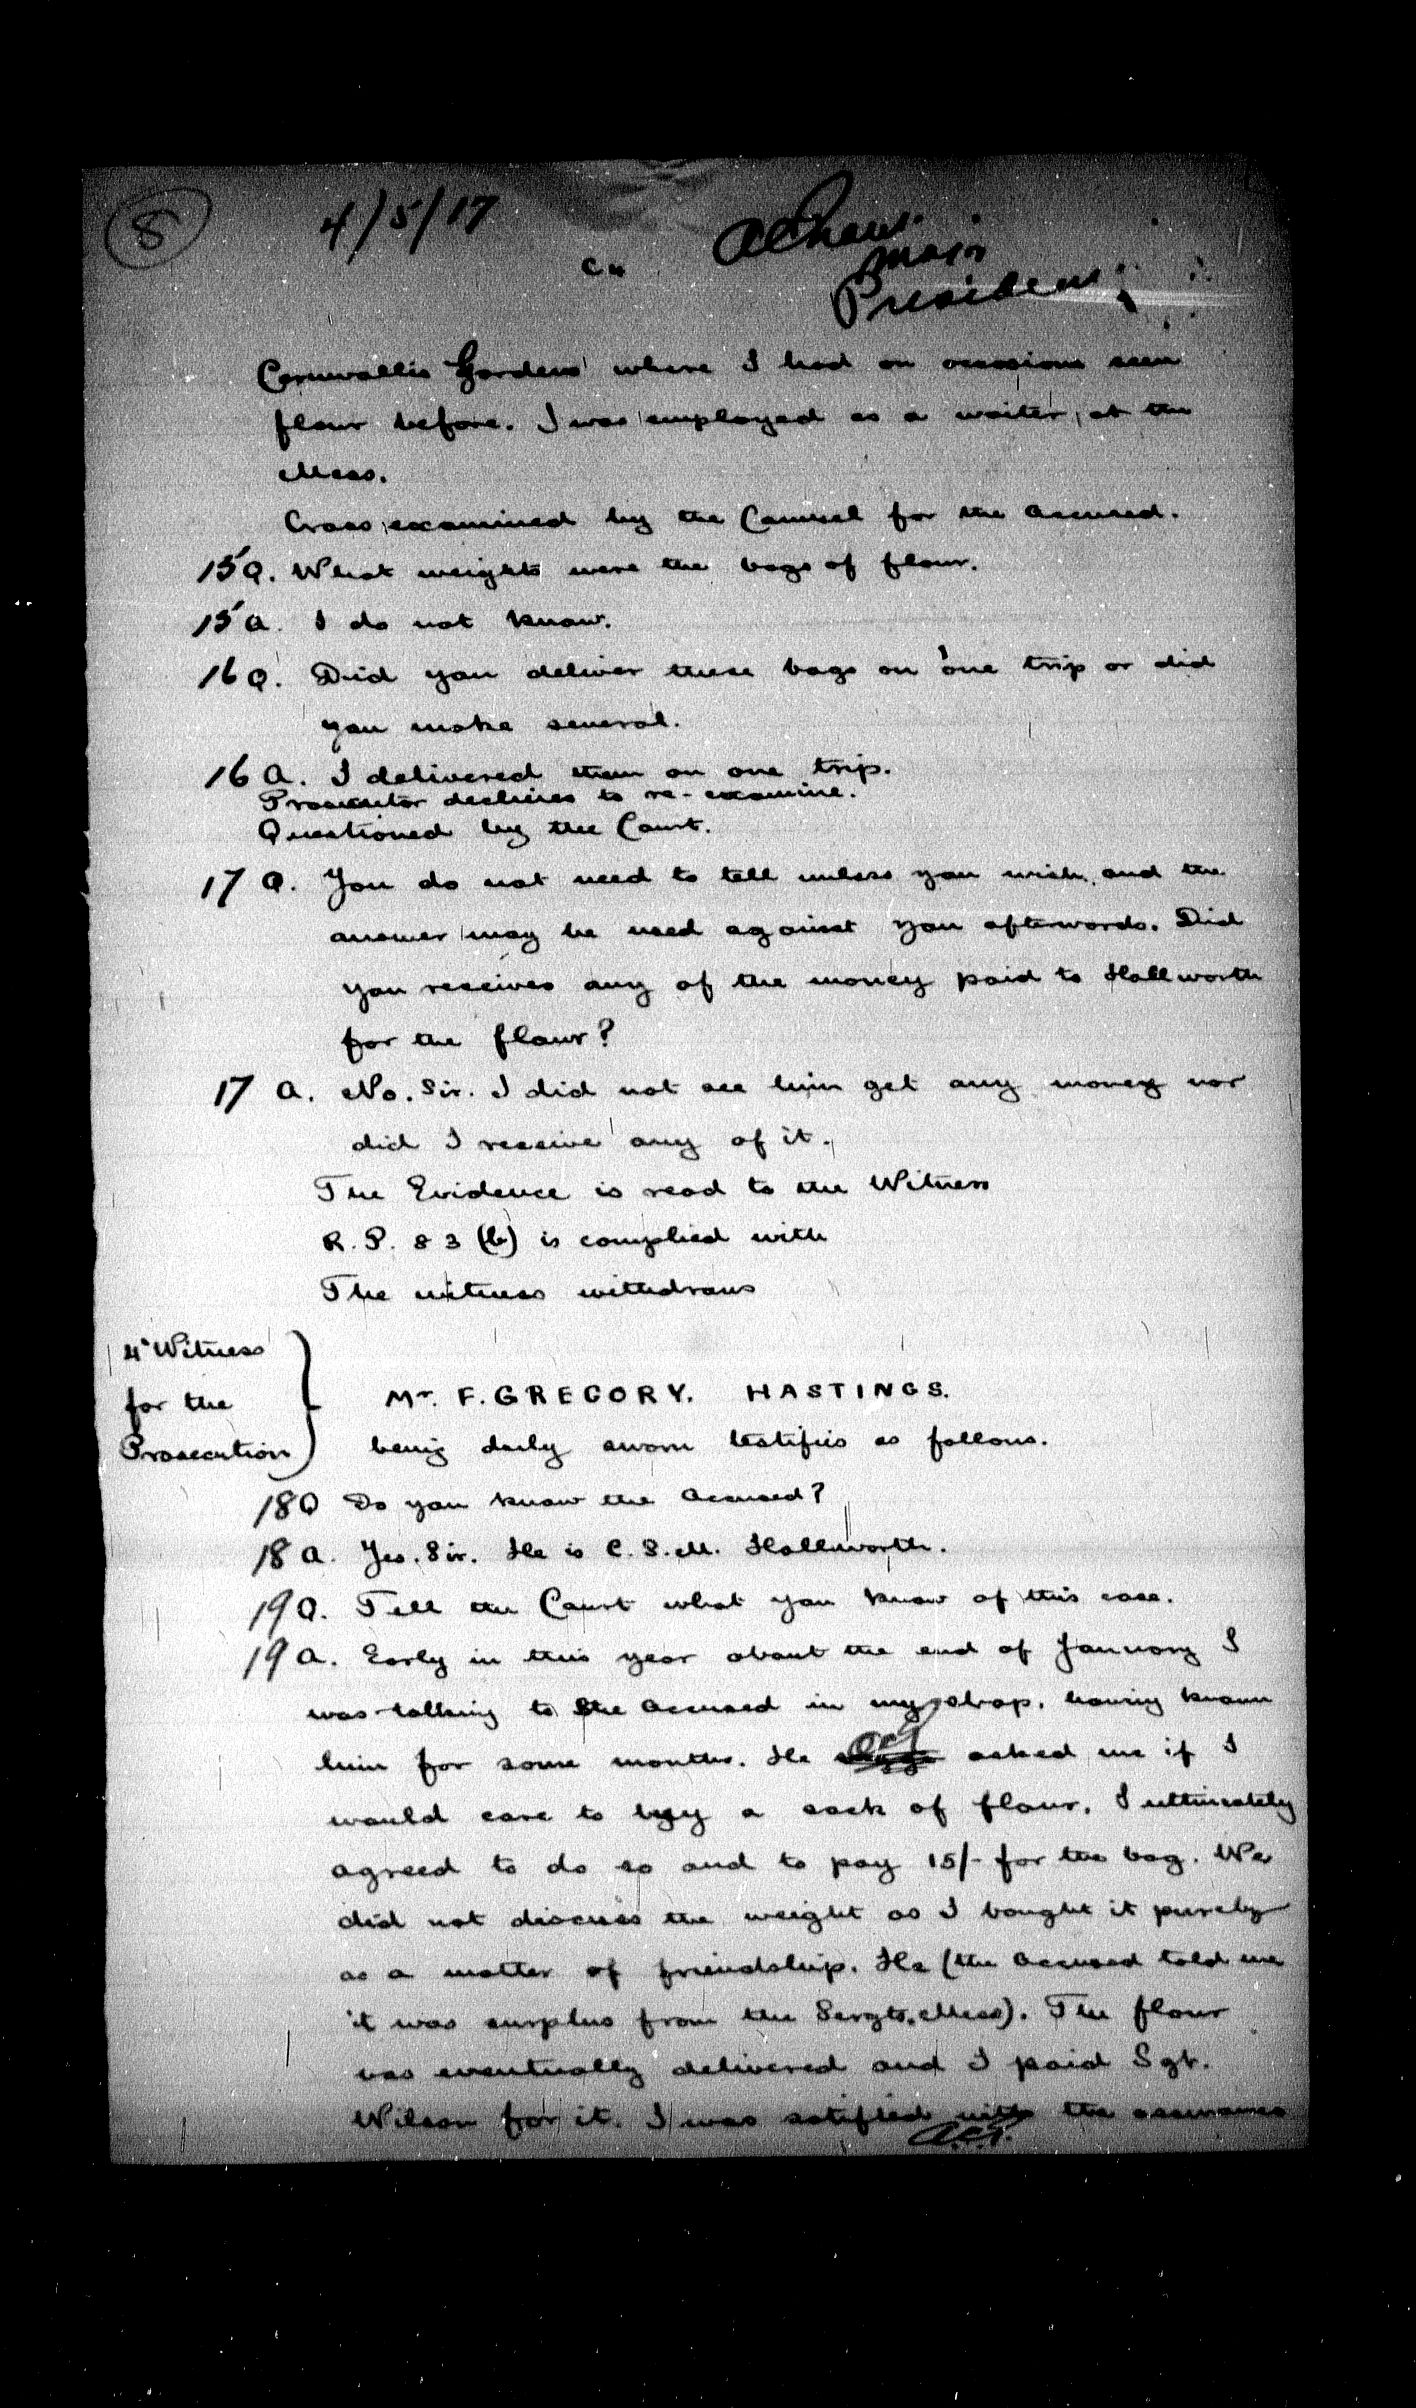 8
4/5/17
C4
Major
President
Cornwallis Gardens where I had on occasions seen
flour before. I was employed as a waiter, at the
Mess.
Cross examined by the Counsel for the Accused.
15 Q. What weights were the bags of flour.
15 A. I do not know.
16 Q. Did you deliver these bags on one trip or did
you make several.
16 A. I delivered them on one trip.
Prosecutor declines to re-examine.
Questioned by the Court.
17 Q. You do not need to tell unless you wish, and the
answer may be used against you afterwards. Did
you receives any of the money paid to Hallworth
for the flour?
17 A. No. Sir. I did not see him get any money nor
did I receive any of it.
The Evidence is read to the Witness
R. P. 83 (b) is complied with
The witness withdraws
4th Witness
for the
Prosecution
Mr. F. GREGORY. HASTINGS.
being duly sworn testifies as follows.
18 Q Do you know the Accused?
18 A. Yes. Sir. He is C. S. M. Hallworth.
19 Q. Tell the Court what you know of this case.
19 A. Early in this year about the end of January I
was talking to the Accused in my shop, having known
him for some months. He asked me if I
would care to buy a sack of flour. I ultimately
agreed to do so and to pay 15/- for the bag. We
did not discuss the weight as I bought it purely
as a matter of friendship. He (the Accused told me
it was surplus from the Sergts. Mess). The flour
was eventually delivered and I paid Sgt.
Wilson for it. I was satisfied with the assurance